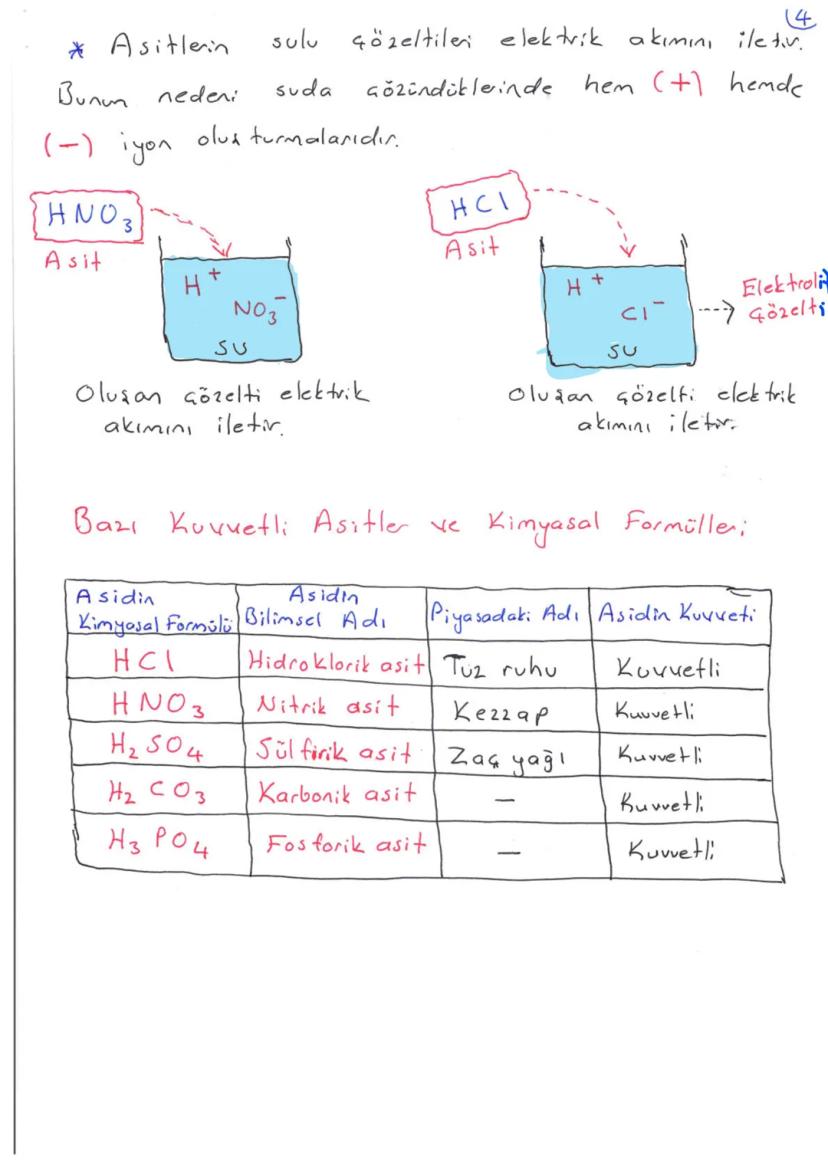 4
* Asitlerin sulu çözeltileri elektrik akımını iletir.
Bunun nedeni suda çözündüklerinde hem (+) hemde
(-) iyon oluşturmalarıdır.
HNO₃
Asit
H⁺
NO₃⁻
SU
Oluşan çözelti elektrik
akımını iletir.
HCl
Asit
H⁺
Cl⁻
SU
Elektrolit
Çözelti
Oluşan çözelti elektrik
akımını iletir.
Bazı Kuvvetli Asitler ve Kimyasal Formülleri
Asidin Kimyasal Formülü | Asidin Bilimsel Adı | Piyasadaki Adı | Asidin Kuvveti
HCl | Hidroklorik asit | Tuz ruhu | Kuvvetli
HNO₃ | Nitrik asit | Kezzap | Kuvvetli
H₂SO₄ | Sülfirik asit | Zaç yağı | Kuvvetli
H₂CO₃ | Karbonik asit | — | Kuvvetli
H₃PO₄ | Fosforik asit | — | Kuvvetli